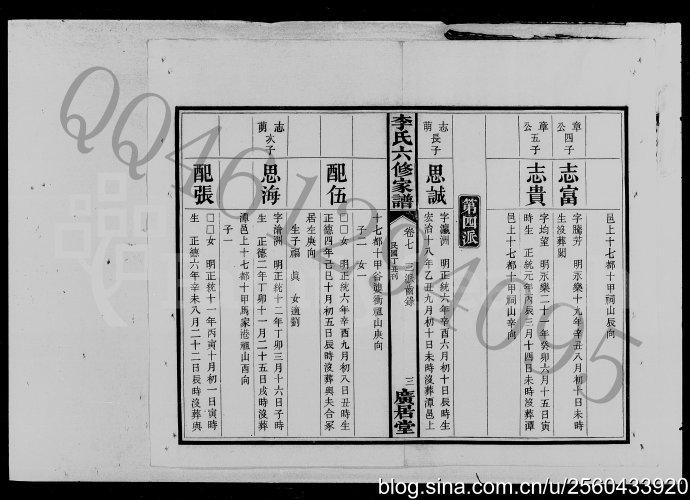 邑上十七都十甲祠山辰向
章四子
公
志富
字騰芳 明永樂十九年辛丑八月十日未時
生沒葬闕
章五子
公
志貴
字均望 明永樂二十一年癸卯六月十五日寅
時生 正統元年丙辰三月十四日未時沒葬譚
邑上十七都十甲祠山辛向
第四派
志長子
萌
思誠
字瀛洲 明正統六年辛酉六月初十日辰時生
宏治十八年乙丑九月初十日未時沒葬譚邑上
李氏六修家譜
卷七 三派齒錄
民國丁丑刊
三
廣居堂
十七都十甲谷壠衝祖山庚向
子二 女一
配伍
□□女 明正統六年辛酉九月初八日丑時生
正德四年己巳十月初五日辰時沒葬與夫合冢
居左庚向
生子福 真 女適劉
志次子
萌
思海
字渝洲 明正統十二年丁卯三月十六日子時
生 正德二年丁卯十一月二十五日戌時沒葬
譚邑上十七都十甲馬家港祖山酉向
子一
配張
□□女 明正統十一年丙寅十月初一日寅時
生 正德六年辛未八月二十二日辰時沒葬與
QQ461294095
blog.sina.com.cn/u/2560433920